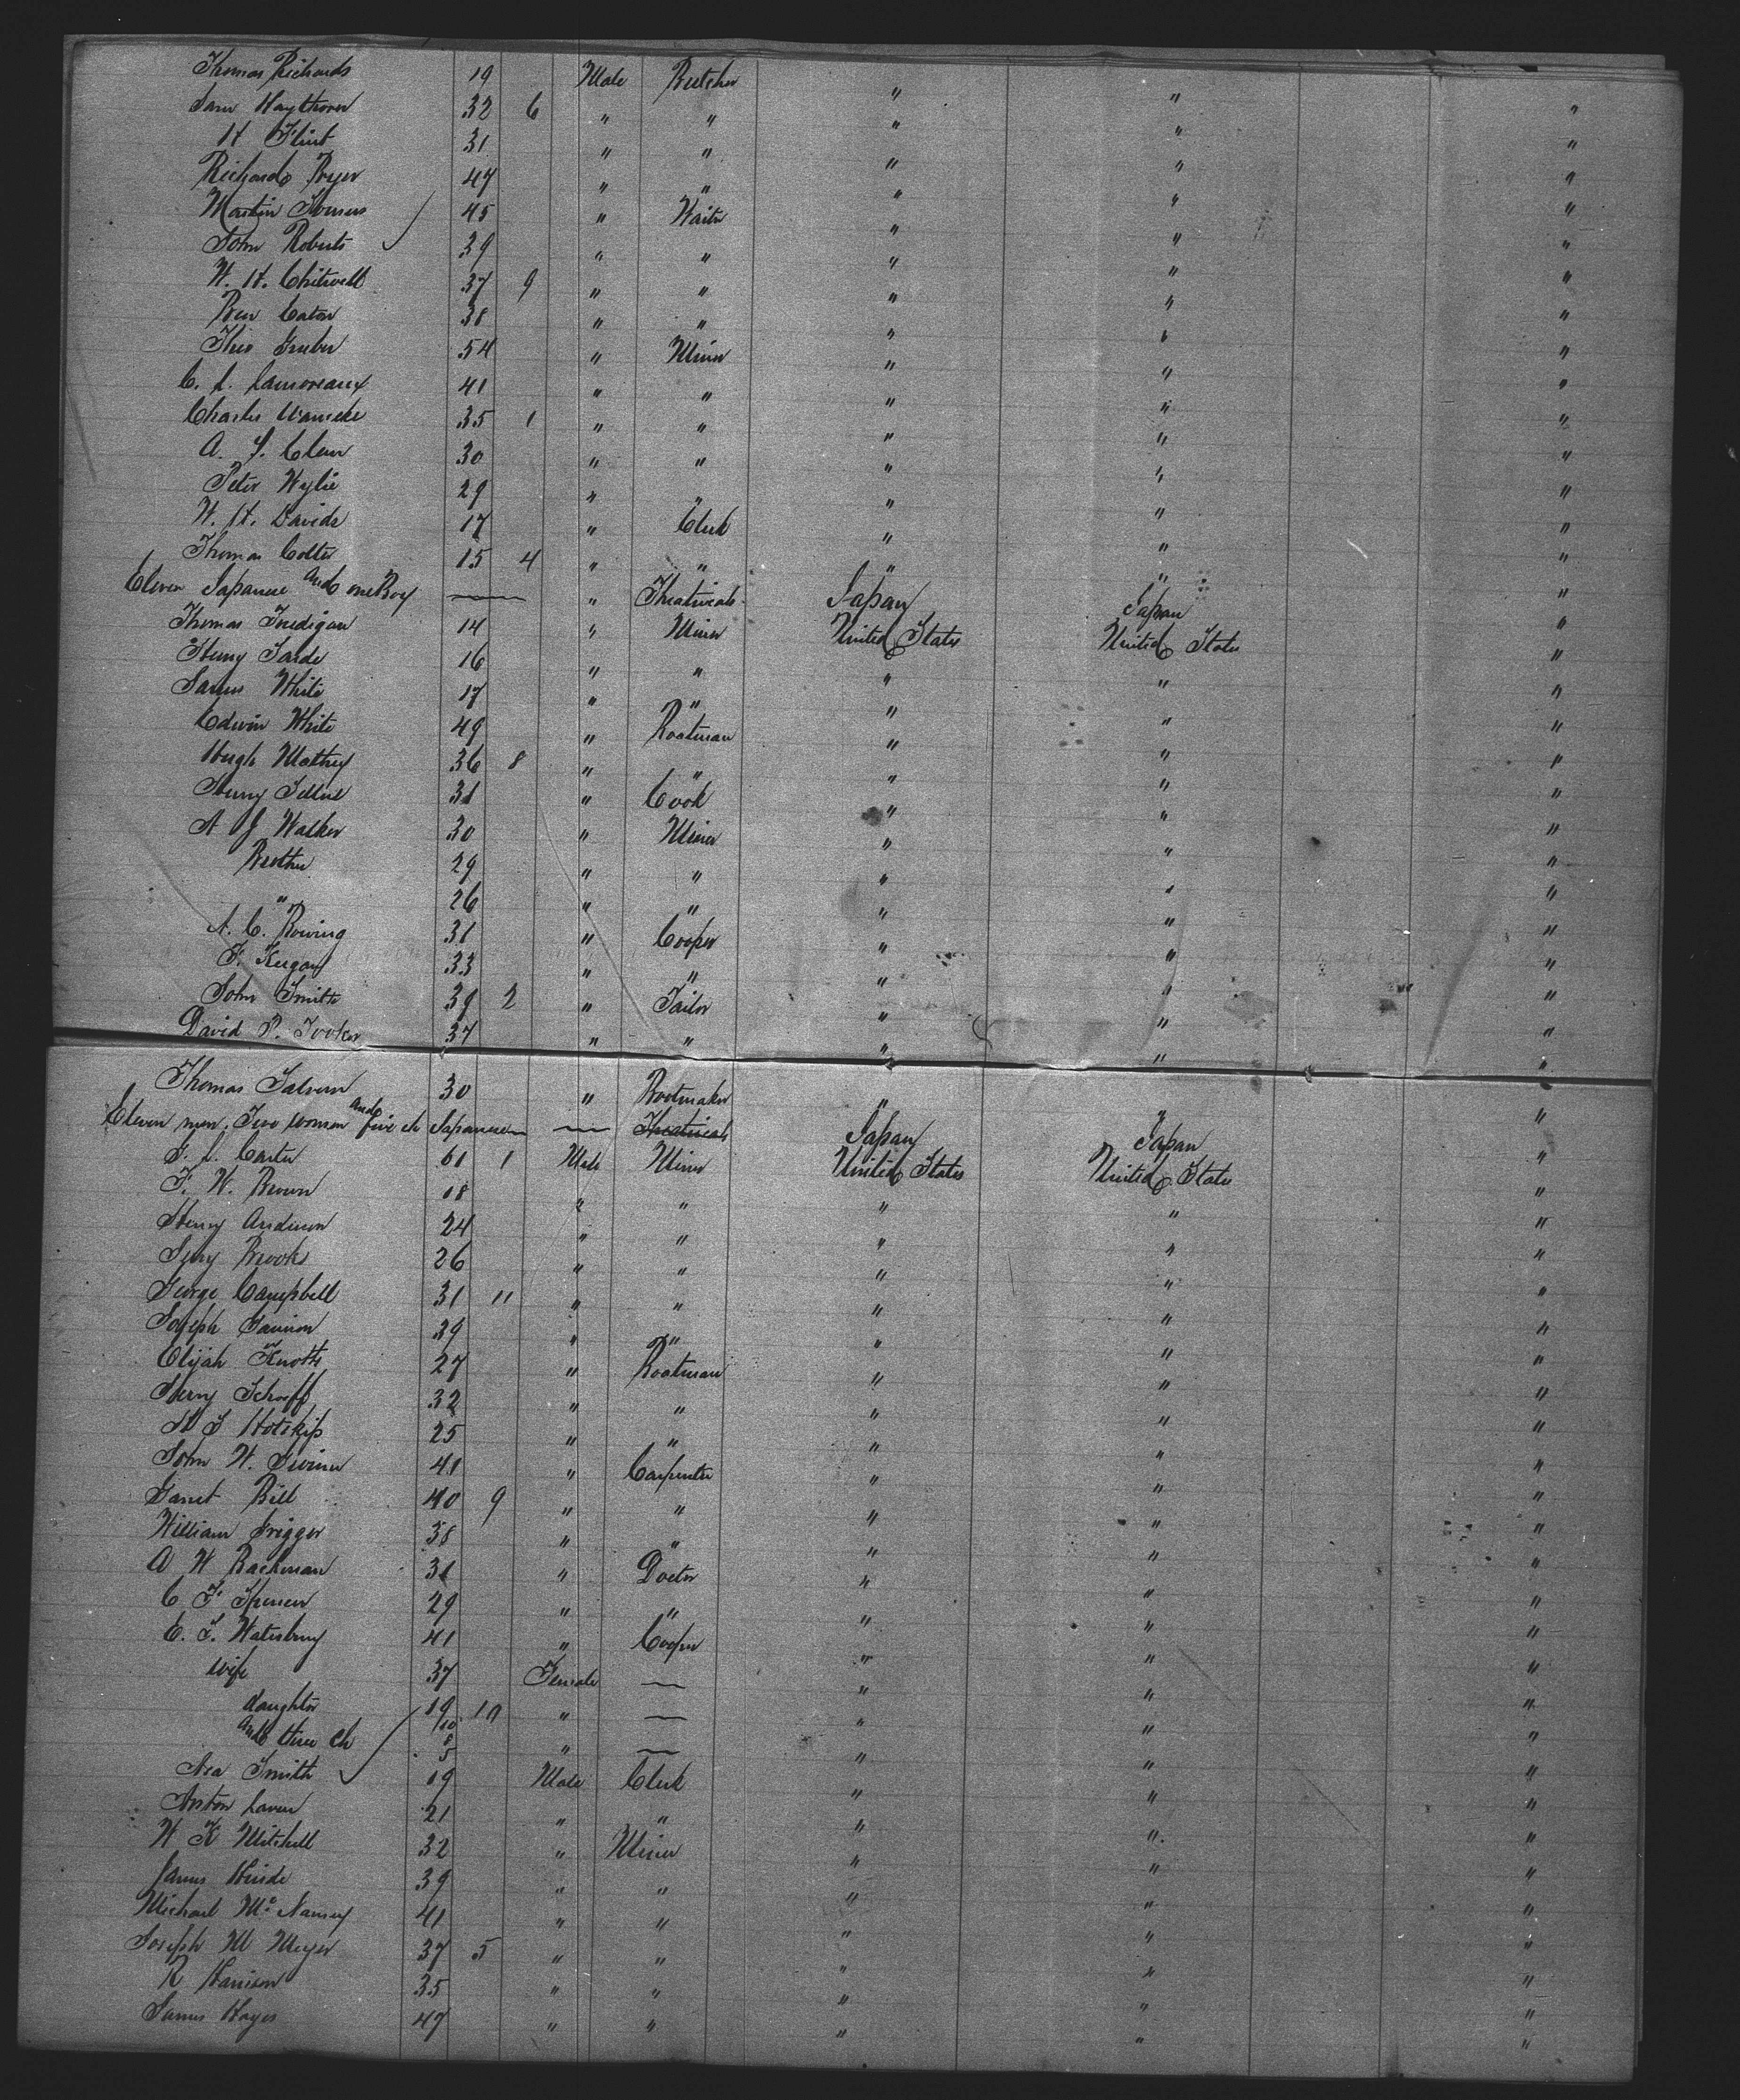 Thomas Richards 19 Male Butcher " " "
Sam Haythorn 32 6 " " " " "
H Flint 31 " " " " "
Richard Pryer 47 " " " " "
Martin 45 " Waiter " " "
John Roberts 39 " " " " "
W. H. Chitwell 37 9 " " " " "
Ben Eaton 38 " " " " "
Theo Gruber 54 " Miner " " "
C. L. Lamoreaux 41 " " " " "
Charles Warneke 35 1 " " " " "
A. S. Clan 30 " " " " "
Peter Wylie 29 " " " " "
W. H. Davids 17 " Clerk " " "
Thomas Colter 15 4 " " " " "
Eleven Japanese and one Boy — " Theatricals Japan Japan "
Thomas Tredigan 14 " Miner United States United States "
Henry 16 " " " " "
James White 17 " " " " "
Edwin White 49 " Boatman " " "
Hugh Mathey 36 8 " " " " "
Henry 31 " Cook " " "
A J Walker 30 " Miner " " "
Brother 29 " " " " "
" 26 " " " " "
A. C. Rowing 31 " Cooper " " "
F. Keegan 33 " " " " "
John Smith 39 2 " Tailor " " "
David P. Tooker 37 " " " " "
Thomas 30 " Bootmaker " " "
Eleven men, Two women and five ch Japanese — Theatricals Japan Japan "
S. L. Carter 61 1 Male Miner United States United States "
F. W. Brown 18 " " " " "
Henry Anderson 24 " " " " "
Jerry Brooks 26 " " " " "
George Campbell 31 11 " " " " "
Joseph 39 " " " " "
Elijah Knotts 27 " Boatman " " "
Henry Schoeff 32 " " " " "
Hotchkiss 25 " " " " "
John W. 41 " Carpenter " " "
Garret Bill 40 9 " " " " "
William Trigger 38 " " " " "
A W Bachman 31 " Doctor " " "
C F Spencer 29 " " " " "
E. S. Waterbury 41 " Cooper " " "
wife 37 Female — " " "
daughter 19 10 " — " " "
and three ch 10 8 5 " — " " "
Asa Smith 19 Male Clerk " " "
Anton Laven 21 " " " " "
W K Mitchell 32 " Miner " " "
James Hinde 39 " " " " "
Michael McNamey 41 " " " " "
Joseph M Meyer 37 5 " " " " "
R Harrison 35 " " " " "
James Hayes 47 " " " " "